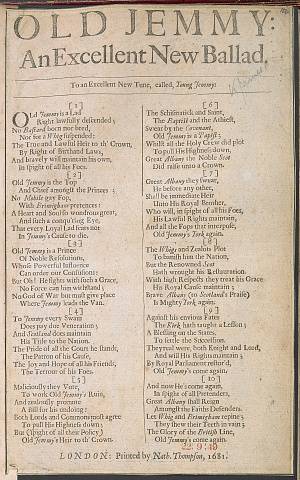 OLD JEMMY:
An Excellent New Ballad.
To an Excellent New Tune, called, Young Jemmy:
[1]
Old Jemmy is a Lad
Right lawfully descended;
No Bastard born nor bred,
Nor for a Whig suspended:
The True and Lawful Heir to th' Crown,
By Right of Birth and Laws,
And bravely will maintain his own,
In spight of all his Foes.
[2]
Old Jemmy is the Top
And Chief amongst the Princes:
No Mobile gay Fop,
With Brimingham pretences:
A Heart and Soul so wondrous great,
And such a conqu'ring Eye,
That every Loyal Lad fears not
In Jemmy's Cause to die.
[3]
Old Jemmy is a Prince
Of Noble Resolutions,
Whose Powerful Influence
Can order our Confusions:
But Oh! He fights with such a Grace,
No Force can him withstand;
No God of War but must give place
Where Jemmy leads the Van.
[4]
To Jemmy every Swain
Does pay due Veneration;
And Scotland does maintain
His Title to the Nation.
The Pride of all the Court he stands,
The Patron of his Cause,
The Joy and Hope of all his Friends,
The Terrour of his Foes.
[5]
Maliciously they Vote,
To work Old Jemmy's Ruin,
And zealously promote
A Bill for his undoing:
Both Lords and Commoners agree
To pull His Highness down;
But (spight of all their Policy)
Old Jemmy's Heir to th' Crown.
[6]
The Schismatick and Saint,
The Baptist and the Atheist,
Swear by the Covenant,
Old Jemmy is a Papist:
Whilst all the Holy Crew did plot
To pull His Highness down,
Great Albany the Noble Scot
Did raise unto a Crown.
[7]
Great Albany they swear,
He before any other,
Shall be immediate Heir
Unto his Royal Brother,
Who will, in spight of all his Foes,
His Lawful Rights maintain,
And all the Fops that interpose,
Old Jemmy's York again.
[8]
The Whigs and Zealots Plot
To banish him the Nation,
But the Renowned Scot
Hath wrought his Restauration.
With high Respects they treat his Grace
His Royal Cause maintain;
Brave Albany (to Scotland's Praise)
Is Mighty York again.
[9]
Against his envious Fates
The Kirk hath taught a Lesson;
A Blessing on the States,
To settle the Succession.
They real were, both Knight and Lord,
And will His Right maintain;
By Royal Parliament restor'd,
Old Jemmy's come again.
[10]
And now he's come again,
In spight of all Pretenders,
Great Albany shall Reign
Amongst the Faiths Defenders.
Let Whig and Brimingham repine;
They shew their Teeth in vain;
The Glory of the British Line,
Old Jemmy's come again.
LONDON: Printed by Nath. Thompson, 1681.